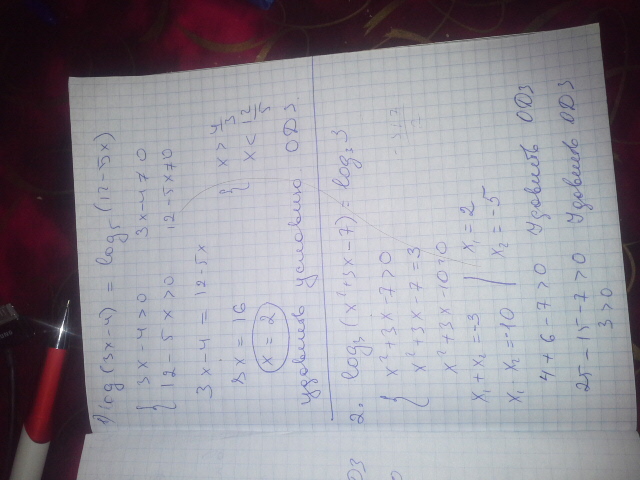 1) log (3x-4) = log₅ (12-5x)
{ 3x-4>0 3x-4>0
12-5x>0 12-5x>0
3x-4 = 12-5x
8x=16 { x > 4/3
x=2 x < 12/5
удовлет условию ОДЗ.
2. log₃ (x²+3x-7) = log₃ 3
{ x²+3x-7>0
x²+3x-7=3
x²+3x-10=0
x₁+x₂=-3 x₁=2
x₁·x₂=-10 x₂=-5
4+6-7>0 Удовлеть ОДЗ
25-15-7>0 Удовлеть ОДЗ
3>0
ДЗ